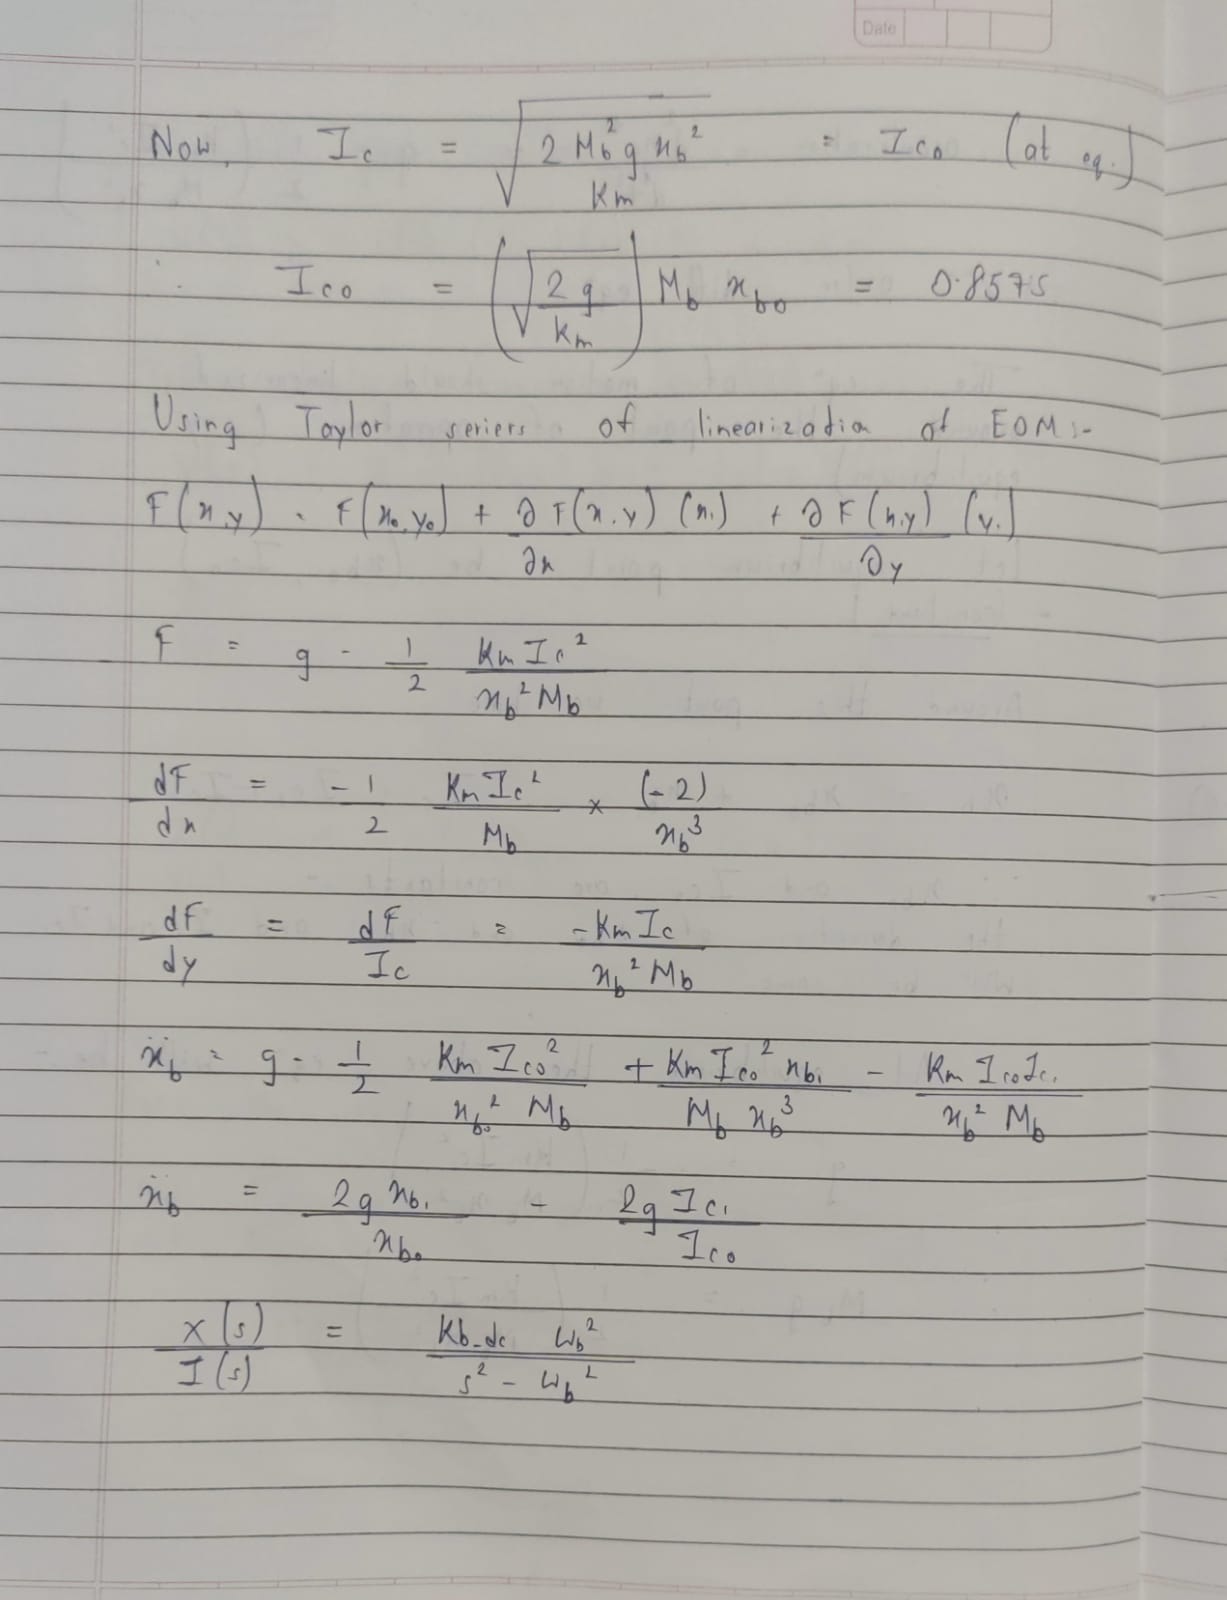 Date
Now, I_c = √(2 M_b² g x_b² / K_m) = I_c0 (at eq.)
∴ I_c0 = (√(2g / K_m)) M_b x_b0 = 0.8575
Using Taylor seriers of linearization of EOM :-
F(x,y) = F(x_0, y_0) + ∂F(x,y)/∂x (x_1) + ∂F(x,y)/∂y (y_1)
F = g - 1/2 K_m I_c² / x_b² M_b
dF/dx = -1/2 K_m I_c² / M_b × (-2) / x_b³
dF/dy = dF/I_c = -K_m I_c / x_b² M_b
ẍ_b = g - 1/2 K_m I_c0² / x_b0² M_b + K_m I_c0² x_b1 / M_b x_b³ - K_m I_c0 I_c1 / x_b² M_b
ẍ_b = 2g x_b1 / x_b0 - 2g I_c1 / I_c0
X(s) / I(s) = K_b_dc ω_b² / s² - ω_b²